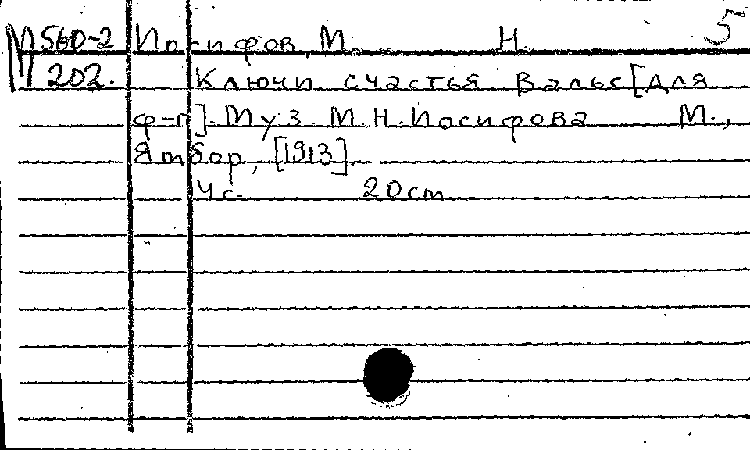 5
М 560-2 Иосифов, М. Н.
202. Ключи счастья Вальс [для
ф-п]. Муз М.Н.Иосифова М.,
Ямбор, [1913].
4 с. 20 cm